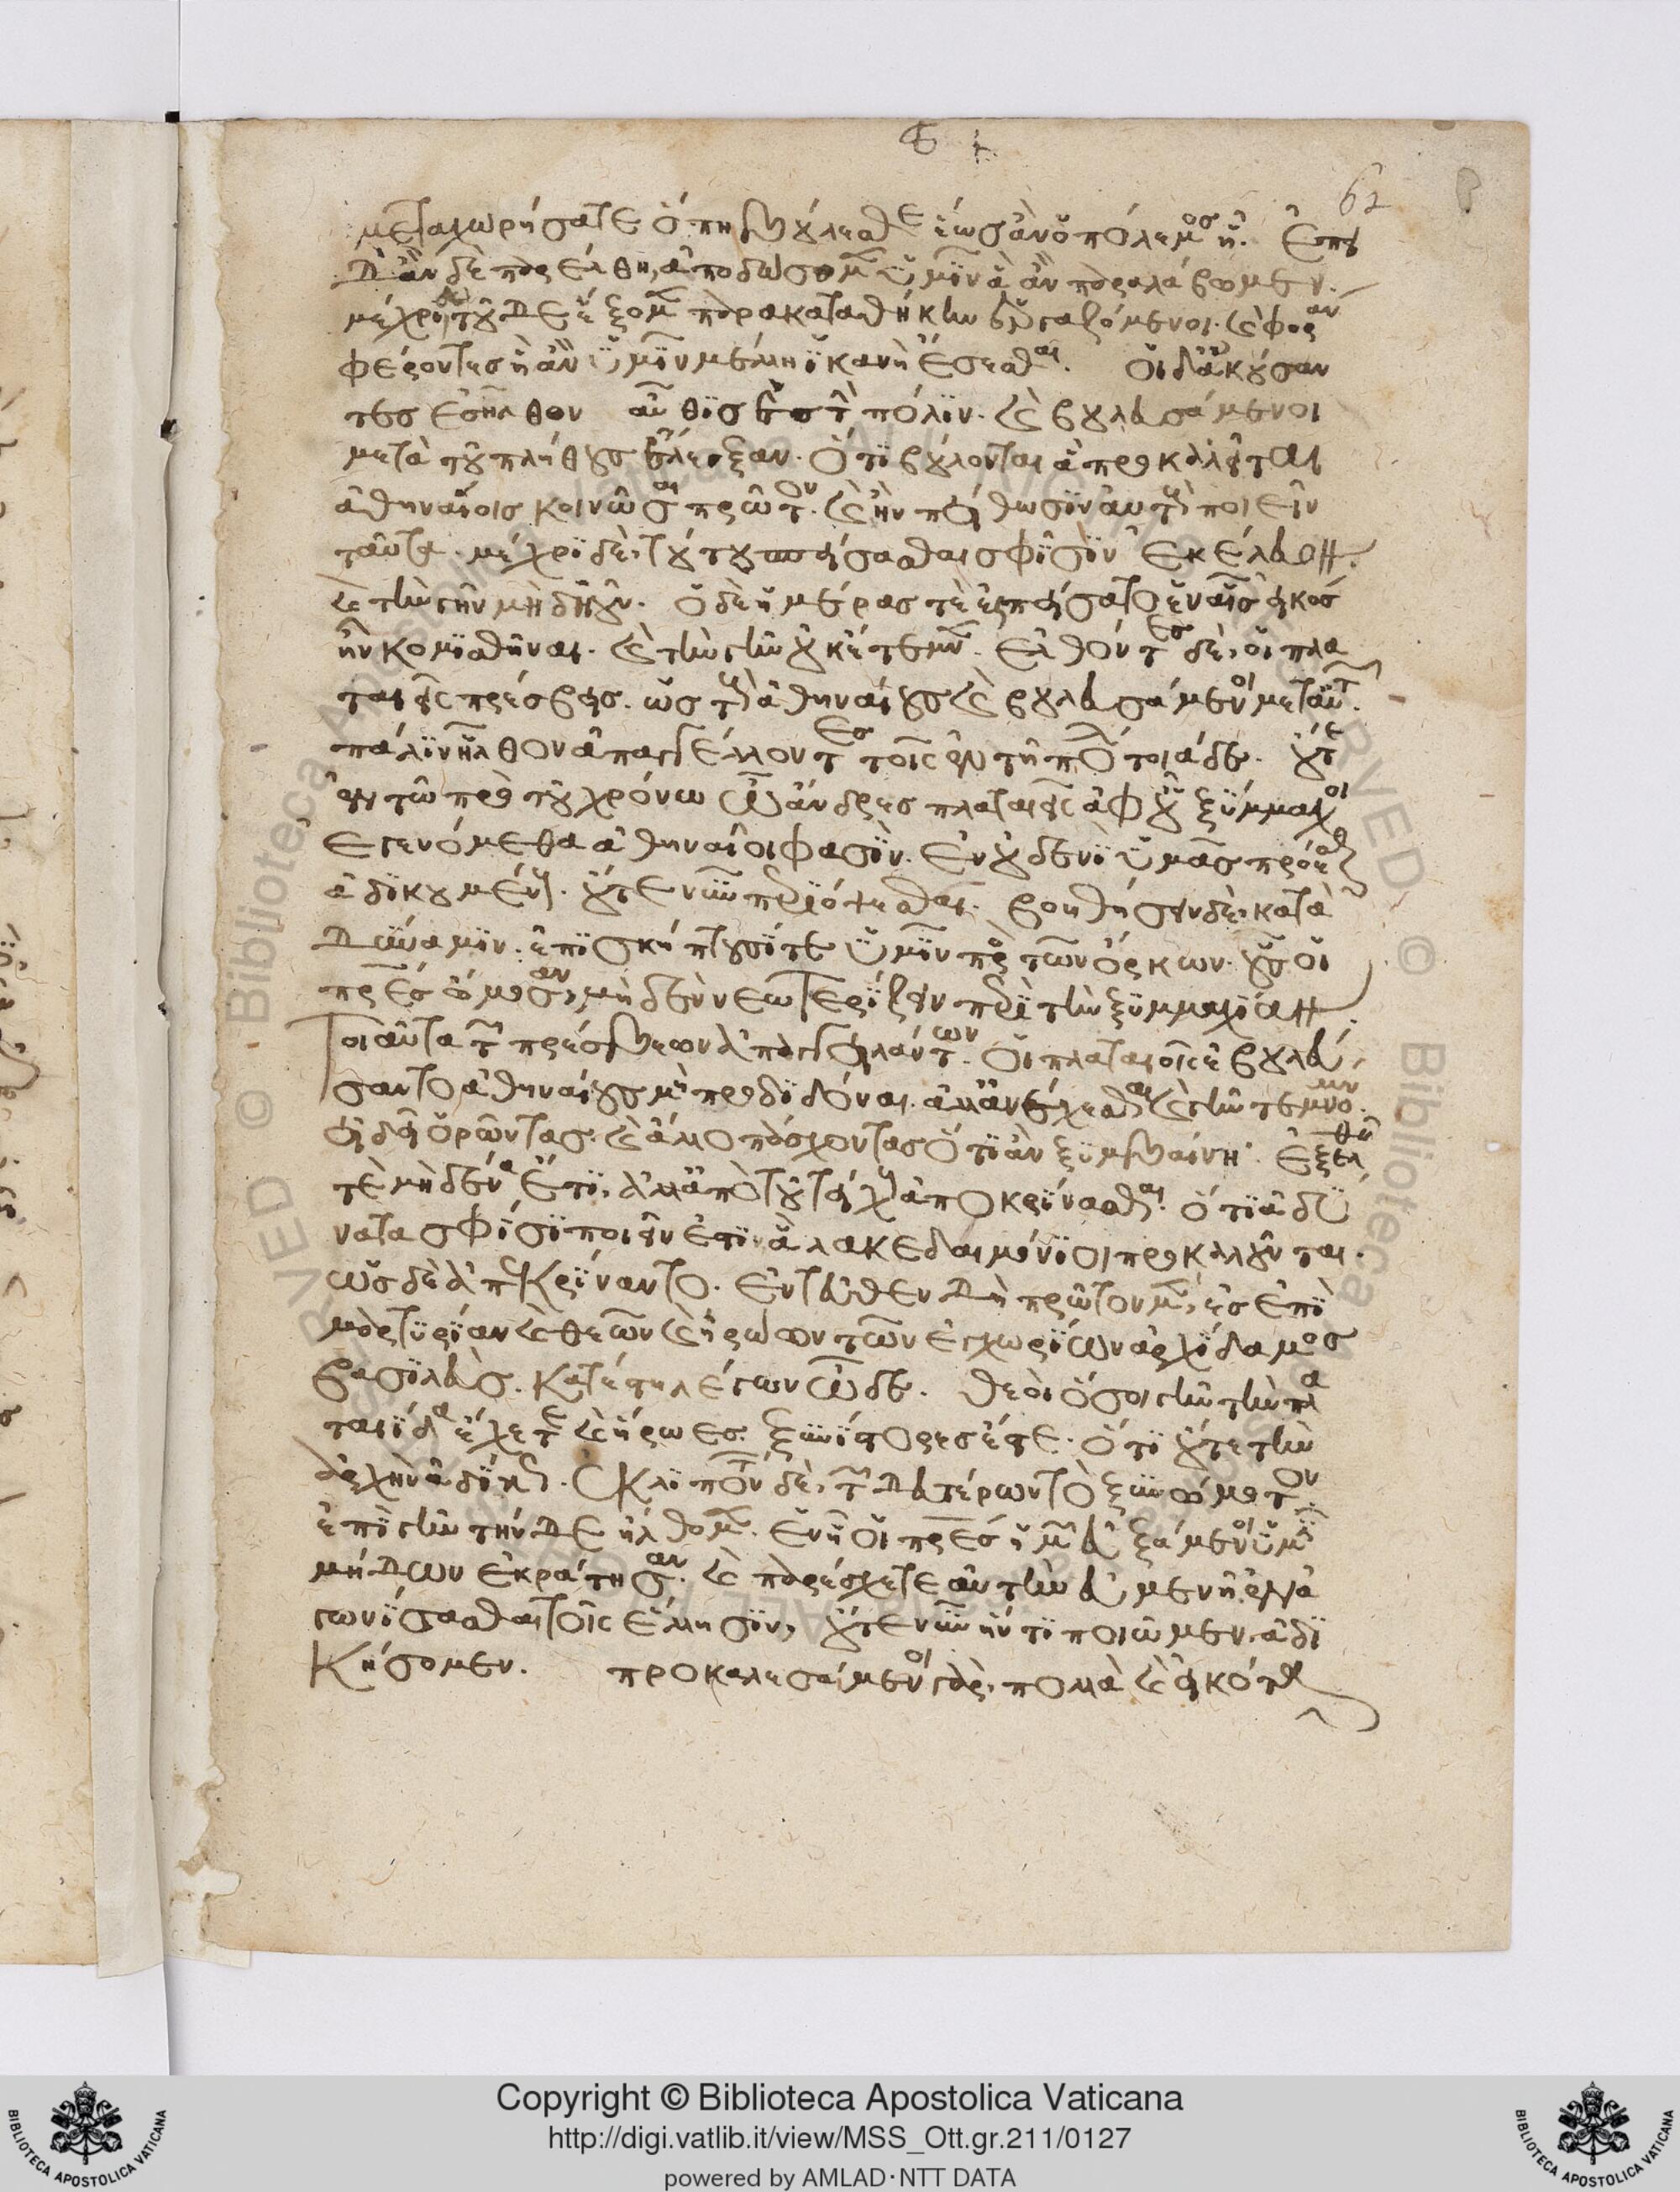 62
μεταχωρήσατε ὅπη βούλεσθε ἕως ἂν ὁ πόλεμος ᾖ. ἐπει
δὰν δὲ παρέλθη, ἀποδώσομεν ὑμῖν ἃ ἂν παραλάβωμεν.
μέχρι δὲ τοῦδε ἕξομεν παρακαταθήκην ἐργαζόμενοι. καὶ φορὰν
φέροντες ἣ ἂν ὑμῖν μέλλη ἱκανὴ ἔσεσθαι. οἱ δ' ἀκούσαν
τες ἐσῆλθον αὖθις ἐς τὴν πόλιν. καὶ βουλευσάμενοι
μετὰ τοῦ πλήθους ἔλεξαν. ὅτι βούλονται ἃ προκαλεῖται
ἀθηναίοις κοινῶσαι πρῶτον. καὶ ἢν πείθωσιν αὐτοὺς ποιεῖν
ταῦτα. μέχρι δὲ τούτου σπείσασθαι σφίσιν ἐκέλευον.
καὶ τὴν γῆν μὴ δηοῦν. ὁ δὲ ἡμέρας τὲ ἐσπείσατο ἐν αἷς εἰκὸς
ἦν κομισθῆναι. καὶ τὴν γῆν οὐκ ἔτεμνεν. ἐλθόντες δὲ, οἱ πλα
ταιεῖς πρέσβεις. ὡς τοὺς ἀθηναίους καὶ βουλευσάμενοι μετ' αὐτῶν.
πάλιν ἦλθον ἀπαγγέλλοντες τοῖς ἐν τῆ πόλει τοιάδε. οὔτε
ἐν τῶ πρὸ τοῦ χρόνω ὦ ἄνδρες πλαταιεῖς ἀφ' οὗ ξύμμαχοι
ἐγενόμεθα ἀθηναῖοι φασὶν. ἐν οὐδενὶ ὑμᾶς προέσθαι
ἀδικουμένους. οὔτε νῦν περιόψεσθαι. βοηθήσειν δὲ, κατὰ
δύναμιν. ἐπισκήπτουσί τε ὑμῖν πρὸς τῶν ὅρκων. οὓς οἱ
πατέρες ὤμοσαν, μὴδὲν νεωτερίζειν περὶ τὴν ξυμμαχίαν.
Τοιαῦτα τῶν πρέσβεων ἀπαγγειλάντων. οἱ πλαταιεῖς ἐβουλεύ
σαντο ἀθηναίους μὴ προδιδόναι. ἀλλ' ἀνέχεσθαι καὶ γῆν τεμνομένην.
εἰ δεῖ ὁρῶντας. καὶ ἄλλο πάσχοντας ὅτι ἂν ξυμβαίνη. ἐξελθεῖν
τὲ μὴδένα ἔτι, ἀλλ' ἀπὸ τοῦ τείχους ἀποκρίνασθαι. ὅτι ἀδύ
νατα σφίσι ποιεῖν ἐστιν ἃ λακεδαιμόνιοι προκαλοῦνται.
ὡς δὲ ἀπεκρίναντο. ἐντεῦθεν δὴ πρῶτον μὲν, ἐς ἐπι
μαρτυρίαν καὶ θεῶν καὶ ἡρώων τῶν ἐγχωρίων ἀρχίδαμος
βασιλεὺς. κατέστη λέγων ὧδε. θεοὶ ὅσοι γῆν τὴν πλα
ταιίδα ἔχετε καὶ ἥρωες. ξυνίστορες ἔστε. ὅτι οὔτε τὴν
ἀρχὴν ἀδίκως. ἐκλιπόντων δὲ, τῶνδε προτέρων τὸ ξυνώμοτον.
ἐπὶ γῆν τήνδε ἤλθομεν. ἐν ᾗ οἱ πατέρες ἡμῶν εὐξάμενοι ὑμῖν
μήδων ἐκράτησαν. καὶ παρέσχετε αὐτὴν εὐμενῆ ἐνα
γωνίσασθαι τοῖς ἕλλησιν, οὔτε νῦν ἤν τι ποιῶμεν, ἀδι
κήσομεν. προκαλεσάμενοι γὰρ, πολλὰ καὶ εἰκότα
Copyright © Biblioteca Apostolica Vaticana
http://digi.vatlib.it/view/MSS_Ott.gr.211/0127
powered by AMLAD·NTT DATA
BIBLIOTECA APOSTOLICA VATICANA
BIBLIOTECA APOSTOLICA VATICANA